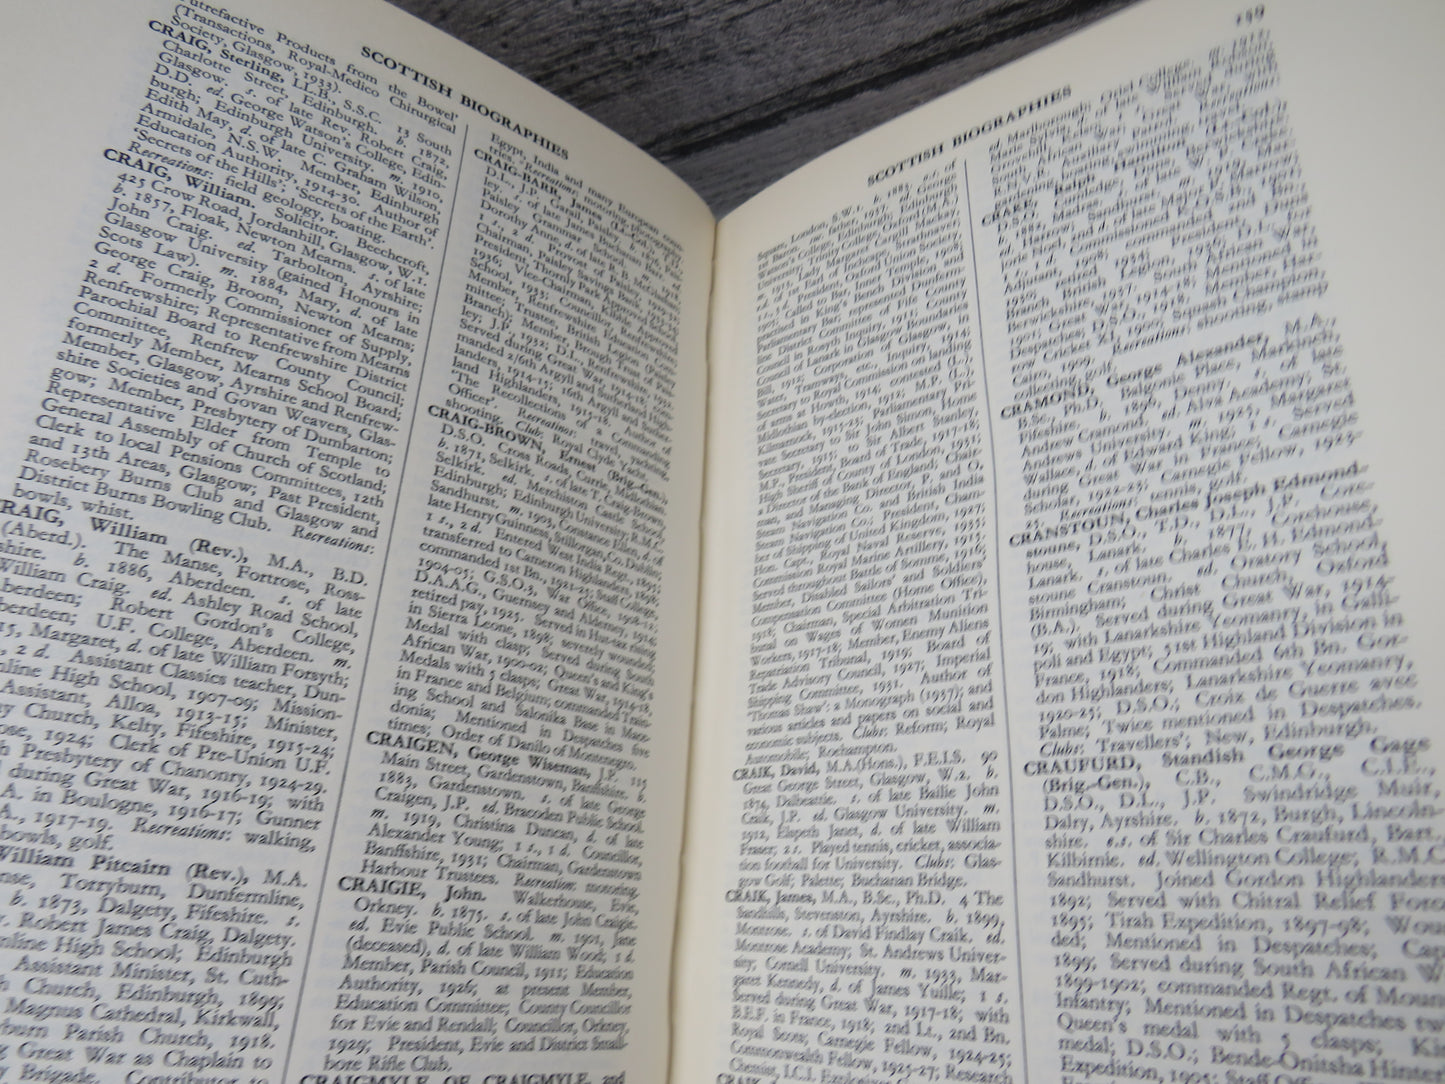 SCOTTISH BIOGRAPHIES
Putrefactive Products from the Bowel'
(Transactions, Royal-Medico Chirurgical
Society, Glasgow, 1933).
CRAIG, Sterling, LL.B., S.S.C. 13 South
Charlotte Street, Edinburgh. b. 1872,
Glasgow. s. of late Rev. Robert Craig,
D.D. ed. George Watson's College, Edin-
burgh; Edinburgh University. m. 1910,
Edith May, d. of late C. Graham Wilson,
Armidale, N.S.W. Member, Edinburgh
Education Authority, 1914-30. Author of
'Secrets of the Hills'; 'Secrets of the Earth'.
Recreations: field geology, boating.
CRAIG, William. Solicitor. Beechcroft,
425 Crow Road, Jordanhill, Glasgow, W.1.
b. 1857, Floak, Newton Mearns. s. of late
John Craig. ed. Tarbolton, Ayrshire;
Glasgow University (gained Honours in
Scots Law). m. 1884, Mary, d. of late
George Craig, Broom, Newton Mearns;
2 d. Formerly Commissioner of Supply,
Renfrewshire; Representative from Mearns
Parochial Board to Renfrewshire District
Committee, Renfrew County Council;
formerly Member, Mearns School Board;
Member, Glasgow, Ayrshire and Renfrew-
shire Societies and Govan Weavers, Glas-
gow; Member, Presbytery of Dumbarton;
Representative Elder from Temple to
General Assembly of Church of Scotland;
Clerk to local Pensions Committees, 12th
and 13th Areas, Glasgow; Past President,
Rosebery Burns Club and Glasgow and
District Burns Bowling Club. Recreations:
bowls, whist.
CRAIG, William (Rev.), M.A., B.D.
(Aberd.). The Manse, Fortrose, Ross-
shire. b. 1886, Aberdeen. s. of late
William Craig. ed. Ashley Road School,
Aberdeen; Robert Gordon's College,
Aberdeen; U.F. College, Aberdeen. m.
15, Margaret, d. of late William Forsyth;
2 d. Assistant Classics teacher, Dun-
line High School, 1907-09; Mission-
Assistant, Alloa, 1913-15; Minister,
Church, Kelty, Fifeshire, 1915-24;
1924; Clerk of Pre-Union U.F.
Presbytery of Chanonry, 1924-29.
during Great War, 1916-19; with
A. in Boulogne, 1916-17; Gunner
1917-19. Recreations: walking,
bowls, golf.
William Pitcairn (Rev.), M.A.
Torryburn, Dunfermline,
b. 1873, Dalgety, Fifeshire. s.
Robert James Craig, Dalgety.
line High School; Edinburgh
Assistant Minister, St. Cuth-
Church, Edinburgh, 1899;
Magnus Cathedral, Kirkwall,
burn Parish Church, 1918.
Great War as Chaplain to
Brigade. Contributor to
Egypt, India and many European coun-
tries. Recreations: motoring, photography.
CRAIG-BARR, James (Lt.-Col.), T.D.,
D.L., J.P. Carall, Paisley.
ley. s. of late James Barr, Paisley. ed.
Paisley Grammar School. m. 1918,
Dorothy Anne, d. of late R. B. McOuat;
1 s., 2 d. Provost of Paisley, 1929-33;
Chairman, Paisley Savings Bank,
President, Thornly Park Approved
School, 1933; Councillor, Renfrewshire,
1936; Vice-Chairman, Education Com-
mittee; Trustee, British Legion (Paisley
Branch); Member, Brough Trust of Pais-
ley; J.P., 1932; D.L., Renfrewshire, 1932.
Served during Great War, 1914-18; com-
manded 2/6th Argyll and Sutherland High-
landers, 1914-15; 16th Argyll and Suther-
land Highlanders, 1915-18. Author of
'The Recollections of a Commanding
Officer'. Club: Royal Clyde Yacht.
Recreations: travel, yachting,
shooting.
CRAIG-BROWN, Ernest (Brig.-Gen.),
D.S.O. Cross Roads, Currie, Midlothian.
b. 1871, Selkirk. s. of late T. Craig-Brown,
Selkirk. ed. Merchiston Castle School,
Edinburgh; Edinburgh University; R.M.C.,
Sandhurst. m. 1903, Constance Ellen, d. of
late Henry Guinness, Stillorgan, Co. Dublin;
1 s., 2 d. Entered West India Regt., 1895;
transferred to Cameron Highlanders, 1898;
commanded 1st Bn., 1921-25; Staff College,
1904-05; G.S.O.3, War Office, 1908-12;
D.A.A.G., Guernsey and Alderney, 1914;
retired pay, 1925. Served in Hut-tax rising
in Sierra Leone, 1898; severely wounded;
Medal with clasp; Served during South
African War, 1900-02; Queen's and King's
Medals with 5 clasps; Great War, 1914-18,
in France and Belgium; commanded Train-
ing School and Salonika Base in Mace-
donia; Mentioned in Despatches five
times; Order of Danilo of Montenegro.
CRAIGEN, George Wiseman, J.P. 115
Main Street, Gardenstown, Banffshire. b.
1883, Gardenstown. s. of late George
Craigen, J.P. ed. Bracoden Public School.
m. 1919, Christina Duncan, d. of late
Alexander Young; 1 s., 1 d. Councillor,
Banffshire, 1931; Chairman, Gardenstown
Harbour Trustees. Recreation: motoring.
CRAIGIE, John. Walkerhouse, Evie,
Orkney. b. 1875. s. of late John Craigie.
ed. Evie Public School. m. 1901, Jane
(deceased), d. of late William Wood; 1 d.
Member, Parish Council, 1911; Education
Authority, 1926; at present Member,
Education Committee; County Councillor
for Evie and Rendall; Councillor, Orkney,
1929; President, Evie and District Small-
bore Rifle Club.
CRAIGMYLE OF CRAIGMYLE, and
SCOTTISH BIOGRAPHIES
159
Square, London, S.W.1. b. 1883. e.s. of
1st Baron. suc. father, 1937. ed. George
Watson's College, Edinburgh; Edinburgh
University; Trinity College, Oxford (B.A.).
m. 1913, Lady Margaret Cargill Mackay,
e.d. of Earl of Inchcape, Strathnaver;
1 s., 3 d. President, Oxford Union Society,
1905. Called to Bar, Inner Temple, 1908;
Practised in King's Bench Division and
Parliamentary Bar; represented Dunferm-
line District Committee of Fife County
Council in Rosyth Inquiry, 1911; County
Council of Lanark in Glasgow Boundaries
Bill, 1912; Corporation of Glasgow in
Water, Tramways, etc., Inquiry, 1914;
Secretary to Royal Commission on landing
of arms at Howth, 1914; contested (L.),
Midlothian by-election, 1912; M.P. (L.),
Kilmarnock, 1915-23; Parliamentary Pri-
vate Secretary to Sir John Simon, Home
Secretary, 1915; to Sir Albert Stanley,
M.P., President, Board of Trade, 1917-18;
High Sheriff of County of London, 1931;
Director of the Bank of England; Chair-
man, and Managing Director, P. and O.
Steam Navigation Co. and British India
Steam Navigation Co.; President, Cham-
ber of Shipping of United Kingdom, 1927;
Hon. Capt., Royal Naval Reserve, 1935.
Commission Royal Marine Artillery, 1915;
Served throughout Battle of Somme, 1916;
Member, Disabled Sailors' and Soldiers'
Compensation Committee (Home Office),
1918; Chairman, Special Arbitration Tri-
bunal on Wages of Women Munition
Workers, 1917-18; Member, Enemy Aliens
Repatriation Tribunal, 1919; Board of
Trade Advisory Council, 1927; Imperial
Shipping Committee, 1931. Author of
'Thomas Shaw': a Monograph (1937); and
various articles and papers on social and
economic subjects. Clubs: Reform; Royal
Automobile; Roehampton.
CRAIK, David, M.A.(Hons.), F.E.I.S. 90
Great George Street, Glasgow, W.2. b.
1874, Dalbeattie. s. of late Bailie John
Craik, J.P. ed. Glasgow University. m.
1912, Elspeth Janet, d. of late William
Fraser; 2 s. Played tennis, cricket, associa-
tion football for University. Clubs: Glas-
gow Golf; Palette; Buchanan Bridge.
CRAIK, James, M.A., B.Sc., Ph.D. 4 The
Sandhills, Stevenston, Ayrshire. b. 1899,
Montrose. s. of David Findlay Craik. ed.
Montrose Academy; St. Andrews Univer-
sity; Cornell University. m. 1933, Mar-
garet Kennedy, d. of James Yuille; 1 s.
Served during Great War, 1917-18; with
B.E.F. in France, 1918; and Lt., 2nd Bn.
Royal Scots; Carnegie Fellow, 1924-25;
Commonwealth Fellow, 1925-27; Research
Chemist, I.C.I. Explosives
CRAIK,
ed. Marlborough; Oriel College,
R.N.V.R. Auxiliary
CRAKE, Ralph Hamilton
D.S.O.
b. 1882, Madras.
ed. Harrow; Sandhurst. m.
Joined K.O.S.B.,
commanded
Adjutant, 1908; President, Duns
Branch, British Legion, 1926; D.L.,
Berwickshire, 1937. South African
War; Great War, 1914-18; Mentioned in
Despatches; D.S.O., 1918. Member, Har-
row Cricket XI, 1900; Squash Champion,
Cairo, 1909. Recreations: shooting, stamp
collecting, golf.
CRAMOND, George Alexander, M.A.,
B.Sc., Ph.D. Balgonie Place, Markinch,
Fifeshire. b. 1896, Denny. s. of late
Andrew Cramond. ed. Alva Academy; St.
Andrews University. m. 1925, Margaret
Wallace, d. of Edward King; 1 s. Served
during Great War in France; Carnegie
Scholar, 1922-23; Carnegie Fellow, 1923-
25. Recreations: tennis, golf.
CRANSTOUN, Charles Joseph Edmond-
stoune, D.S.O., T.D., D.L., J.P. Core-
house, Lanark. b. 1877, Corehouse,
Lanark. s. of late Charles E. H. Edmond-
stoune Cranstoun. ed. Oratory School,
Birmingham; Christ Church, Oxford
(B.A.). Served during Great War, 1914-
19; with Lanarkshire Yeomanry, in Galli-
poli and Egypt; 51st Highland Division in
France, 1918; Commanded 6th Bn. Gor-
don Highlanders; Lanarkshire Yeomanry,
1920-25; D.S.O.; Croix de Guerre avec
Palme; Twice mentioned in Despatches.
Clubs: Travellers'; New, Edinburgh.
CRAUFURD, Standish George Gage
(Brig.-Gen.), C.B., C.M.G., C.I.E.,
D.S.O., D.L., J.P. Swindridge Muir,
Dalry, Ayrshire. b. 1872, Burgh, Lincoln-
shire. e.s. of Sir Charles Craufurd, Bart.,
Kilbirnie. ed. Wellington College; R.M.C.
Sandhurst. Joined Gordon Highlanders
1892; Served with Chitral Relief Force
1895; Tirah Expedition, 1897-98; Woun-
ded; Mentioned in Despatches; Capt
1899; Served during South African W
1899-1902; commanded Regt. of Moun
Infantry; Mentioned in Despatches tw
Queen's medal with 5 clasps; Ki
medal; D.S.O.; Bende-Onitsha Hinter
Expedition, 1905; Staff